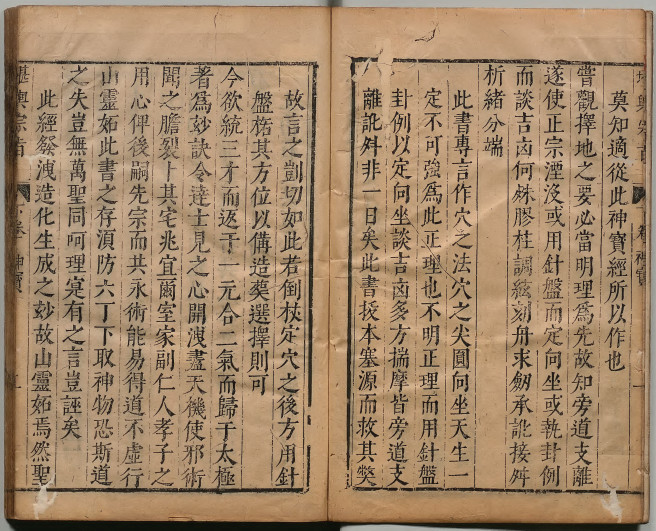 莫知適從此神寶經所以作也
嘗觀擇地之要必當明理爲先故知旁道支離
遂使正宗湮没或用針盤而定向坐或執卦例
而談吉凶何殊膠柱調絃刻舟求劒承訛接舛
析緒分端
此書專言作穴之法穴之尖圓向坐天生一
定不可強爲此正理也不明正理而用針盤
卦例以定向坐談吉凶多方揣摩皆旁道支
離訛舛非一日矣此書援本塞源而救其獘
故言之剴切如此若倒杖定穴之後方用針
盤格其方位以備造𦵏選擇則可
今欲統三才而返于一元合二氣而歸于太極
者爲玅訣令達士見之心開洩盡天機使邪術
聞之膽裂卜其宅兆宜爾室家副仁人孝子之
用心俾後嗣先宗而共永術能易得道不虛行
山靈妬此書之存湏防六丁下取神物恐斯道
之失豈無萬聖同呵理寔有之言豈誣矣
此經發洩造化生成之玅故山靈妬焉然聖
堪輿宗旨 下卷 神寶 一